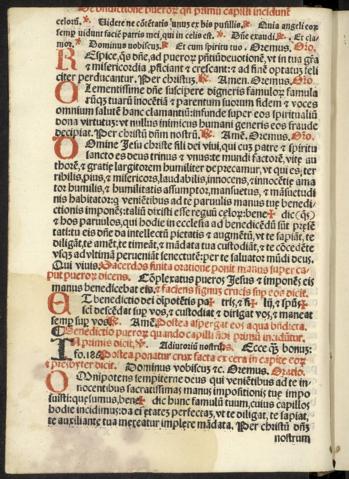 De bn̄dictione pueroꝝ qn̄ pānū capilli incidunt
celorū. ℟. Uidete ne cōtēnatis vnuȝ er bis pusillis. ℟. Quia angeli eoꝝ
semp vident faciē patris mei, qui in celis est. ℣. Dn̄e exaudi. ℟. Et cla
mor. ℣. Dominus vobiscuȝ. ℟. Et cum spiritu tuo. Oremus. Oro.
Respice, qs̄ dn̄e, ad pueroꝝ
ē misericordia, ꝑficiant ⁊ crescant: ⁊ ad finē optatuȝ feli
citer perducantur. Per christuȝ. ℟. Amen. Oremus. Oro.
O Clementissime dn̄e suscipere digneris famuloꝝ famula
rūqȝ tuarū inocētiā ⁊ parentum suorum fidem ⁊ voces
omnium salutē hanc clamantiū: infunde super eos spirituali
dona virtutuȝ: vt nullus inimicus humani generis eos fraude
decipiat. Per christū dn̄m nostrū. ℟. Amē. Oremus. Oro.
O Domine Jesu christe fili dei viui, qui cuȝ patre ⁊ spiritu
sancto es deus trinus ⁊ vnus: te mundi factorē, vite au
thorē, ⁊ gratie largitorem humiliter deprecamur, vt qui es ter
ribilis, pius, ⁊ misericors, laudabilis, innocens, ⁊ innocētie ama
tor humilis, ⁊ humilitatis assumptor, mansuetus, ⁊ māsuetudi
nis habitator: qui veniētibus ad te paruulis manus tuȩ benedi
ctionis imponēs: taliū dixisti esse regnū celoꝝ: bene ✠ dic (qs̄)
hos paruulos, qui hodie in ecclesia ad benedicēdū sūt pręsē
tati: tu eis dn̄e da intellectū pietatis ⁊ augmētū, vt te sapiāt, te
diligāt, te amēt, te timeāt, ⁊ mādata tua custodiāt, ⁊ te cōcedēte
vsqȝ ad vltimā perueniāt senectutē: per te saluator mūdi deus.
Qui viuis. Sacerdos finita oratione ponit manus super ca
put pueroꝝ dicens. Cōplexatus pueros Jesus ⁊ imponēs eis
manus benedicebat eis: ⁊ faciens signuȝ crucis sup eos dicit.
E Et benedictio dei oīpotētis pa ✠ tris, ⁊ fi ✠ lii, ⁊ spūs ✠
sci descēdat sup vos, ⁊ custodiat ⁊ dirigat vos, ⁊ maneat
semp sup vos. ℟. Amē. Postea aspergat eos aqua bn̄dicta.
Benedictio pueroꝝ quando capilli dn̄i pānū inciduntur.
In primis dicit, ℣. Adiutoriū nostrū. Ecce qȝ bonuȝ:
fo. 186. Postea ponatur crux facta ex cera in capite eoꝝ ⁊
presbyter dicit. Dominus vobiscuȝ ⁊c. Oremus. Oratio.
O Omnipotens sempiterne deus qui veniētibus ad te in
nocentibus sacratissimas manus impositionis tuę impo
suisti: quęsumus, bene ✠ dic hunc famulū tuum, cuius capillos
hodie incidimus: da ei ętates perfectas, vt te diligat, te sapiat,
te auxiliante tua mereatur implere mādata. Per christū dn̄ȝ
nostrum